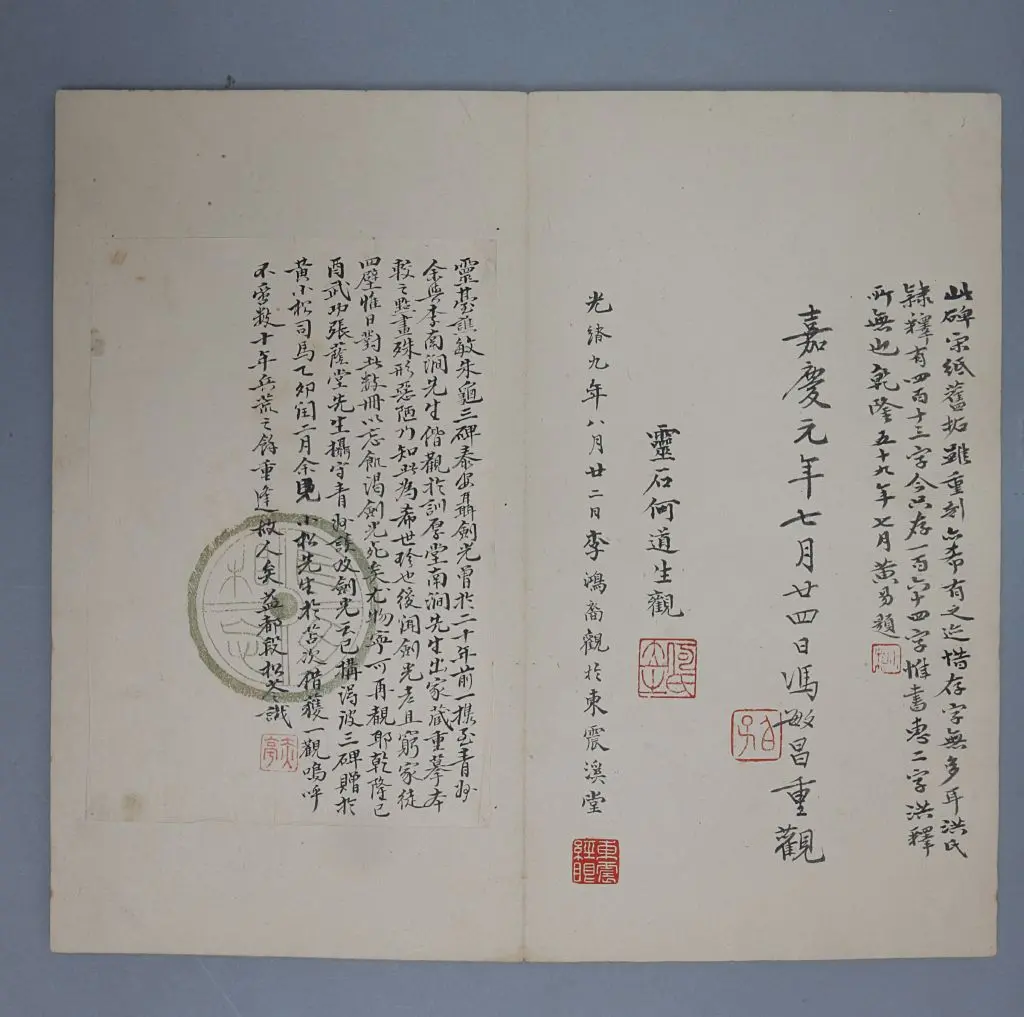 此碑宋紙舊拓雖重刻亦希有之迹惜存字無多耳洪氏
隸釋有四百十三字今只存一百六十四字惟書惠二字洪釋
所無也乾隆五十九年七月黃易題
嘉慶元年七月廿四日馮敏昌重觀
靈石何道生觀
光緒九年八月廿二日李鴻裔觀於東震溪堂
東震經眼
靈臺譙敏朱龜三碑泰安聶劍光曾於二十年前一攜至青州
余與李南澗先生偕觀於訓厚堂南澗先生出家藏重摹本
較之點畫殊形惡陋乃知此為希世珍也後聞劍光老且窮家徒
四壁惟日對此數冊以忘飢渴劍光死矣尤物寧可再覩耶乾隆己
酉武功張蔭堂先生攝守青州詼劍光云已購得彼三碑贈於
黃小松司馬乙卯閏二月余見小松先生於苫次借獲一觀嗚呼
不啻數十年兵荒之餘重逢故人矣益都段松苓識